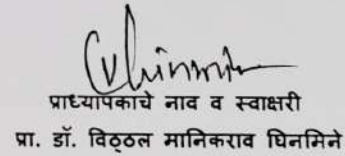 प्राध्यापकाचे नाव व स्वाक्षरी
प्रा. डॉ. विठ्ठल मानिकराव घिनमिने